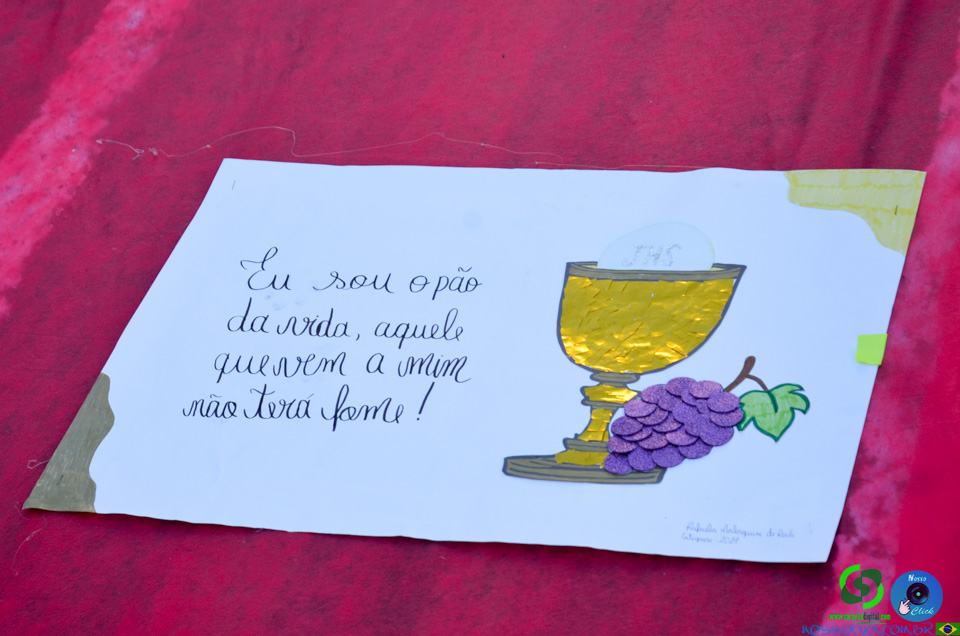 Eu sou o pão
da vida, aquele
que vem a mim
não terá fome!
JHS
Nosso
Click